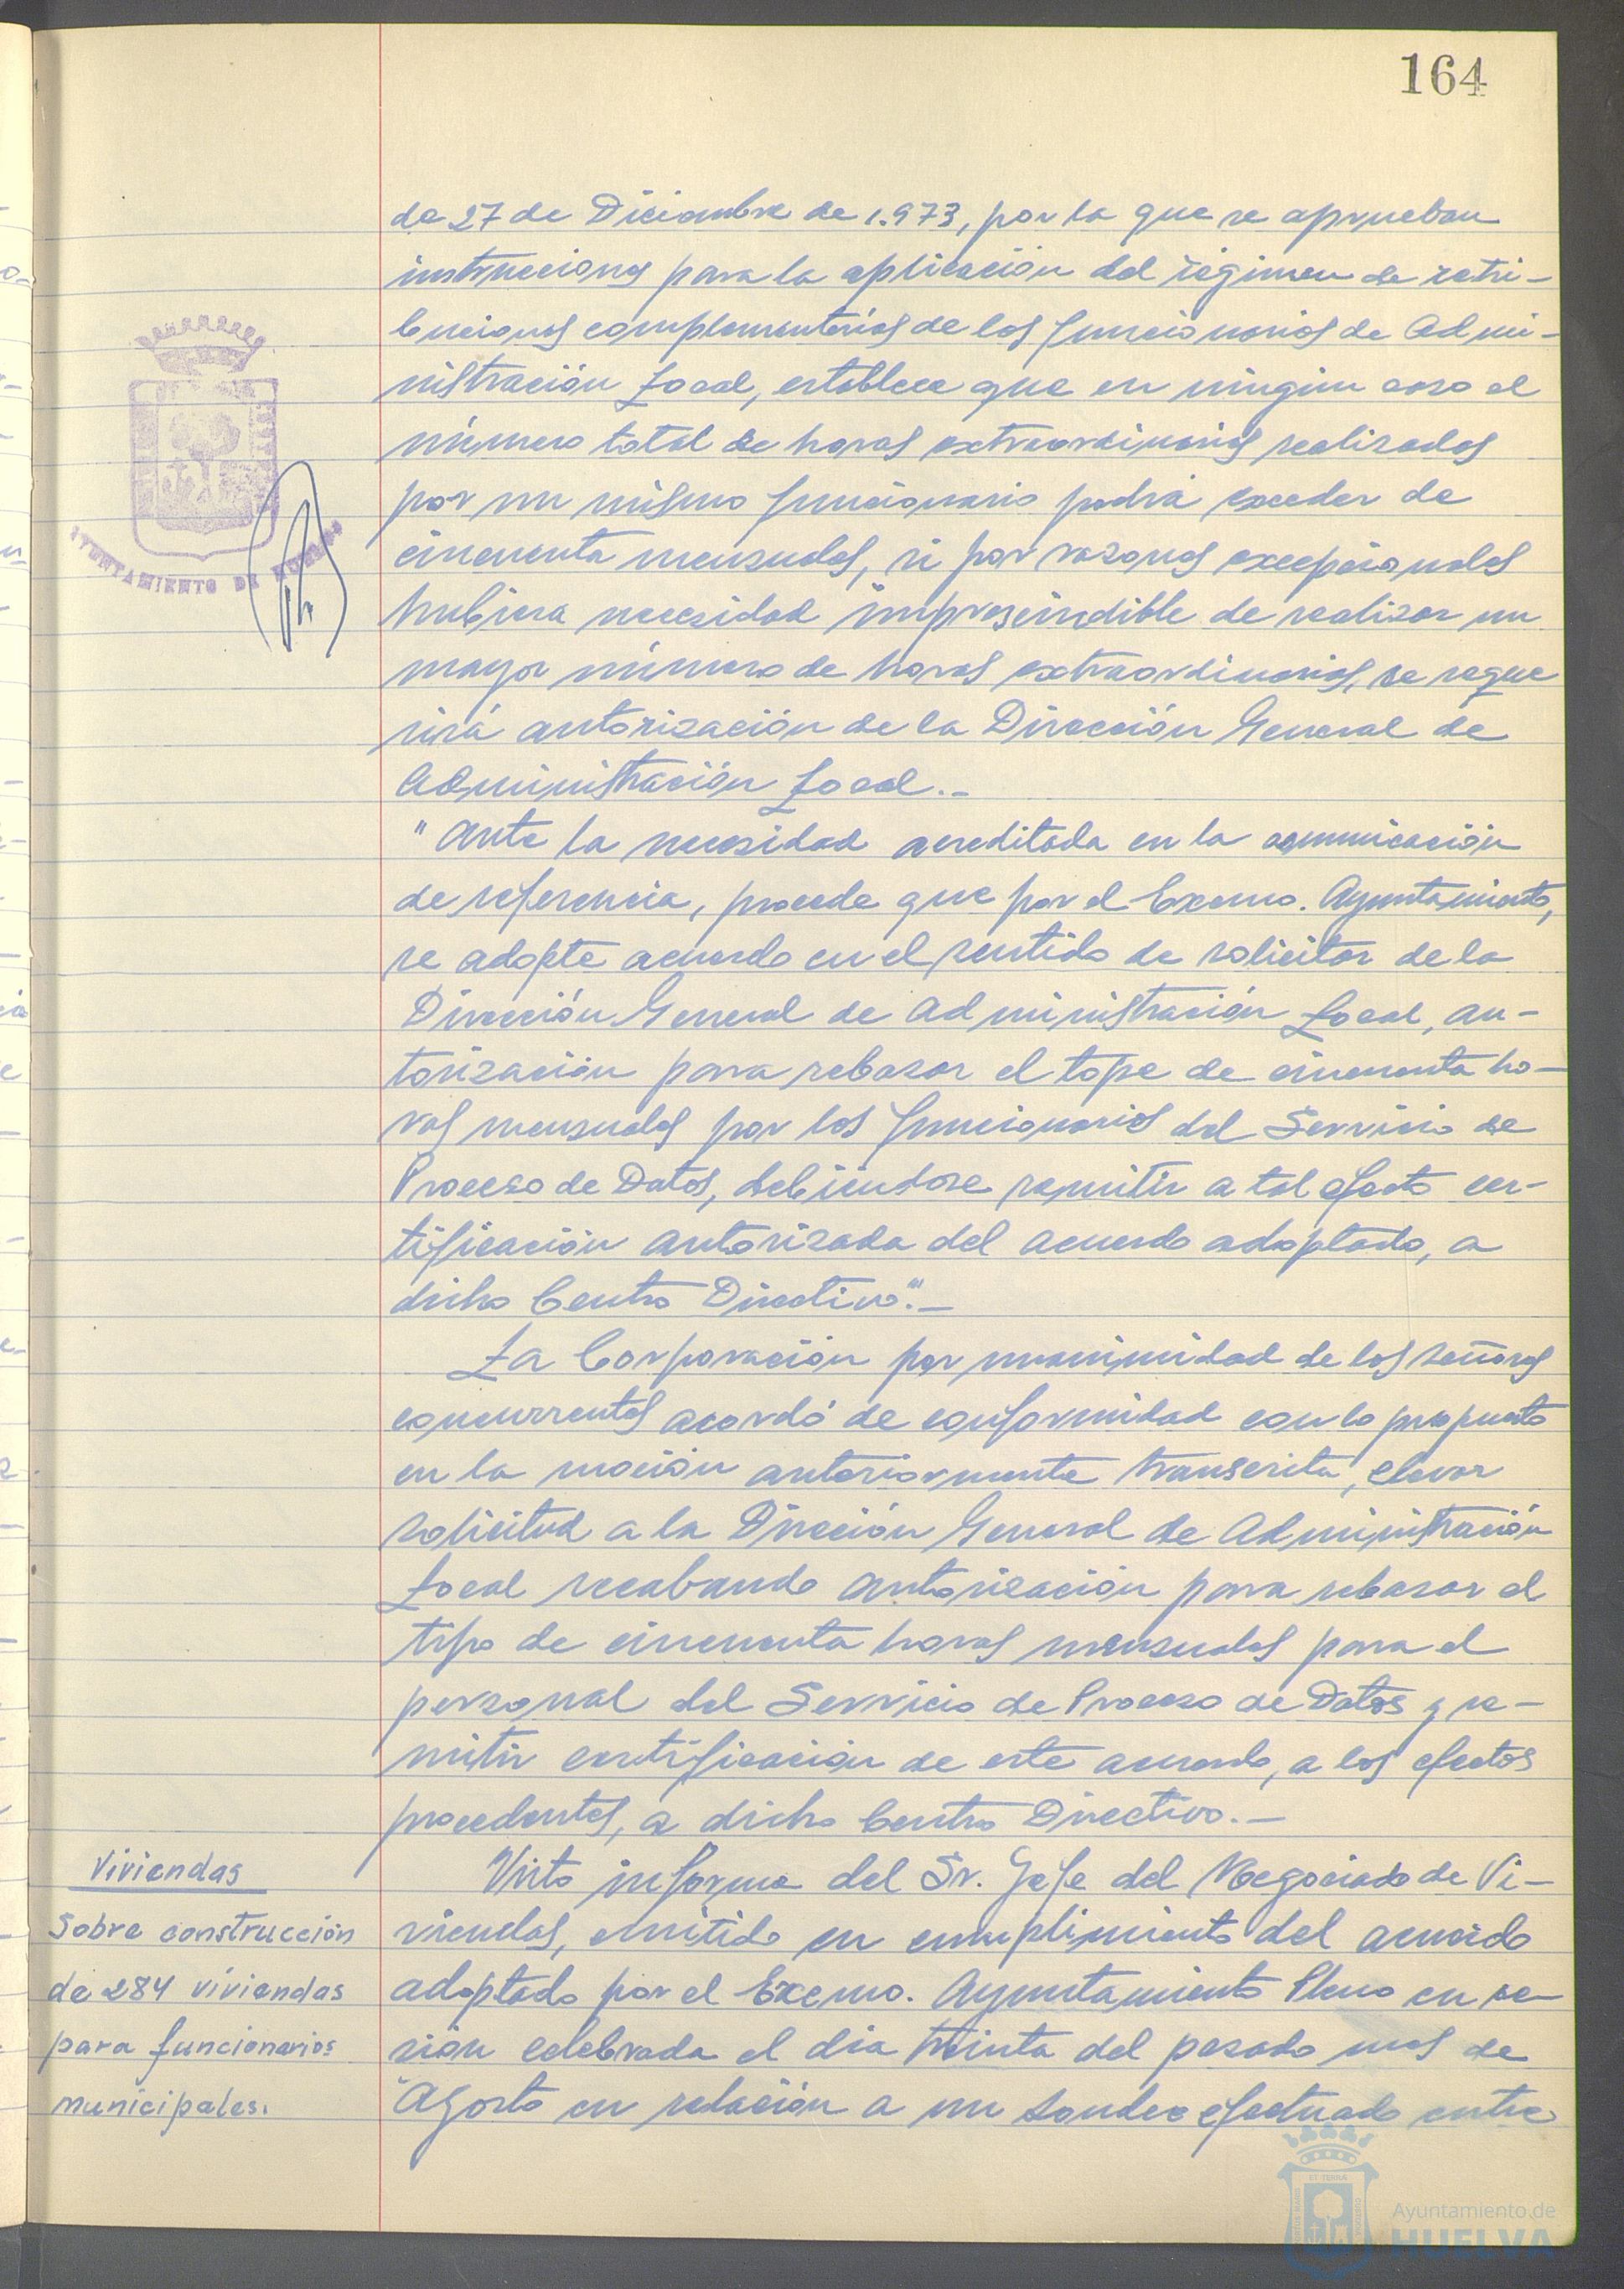 164
de 27 de Diciembre de 1.973, por la que se aprueban
instrucciones para la aplicación del régimen de retri-
buciones complementarias de los funcionarios de Admi-
nistración Local, establece que en ningún caso el
número total de horas extraordinarias realizadas
por un mismo funcionario podrá exceder de
cincuenta mensuales, si por razones excepcionales
hubiera necesidad imprescindible de realizar un
mayor número de horas extraordinarias, se reque
rirá autorización de la Dirección General de
Administración Local.-
AYUNTAMIENTO DE HUELVA
"Ante la necesidad acreditada en la comunicación
de referencia, procede que por el Excmo. Ayuntamiento,
se adopte acuerdo en el sentido de solicitar de la
Dirección General de Administración Local, au-
torización para rebasar el tope de cincuenta ho-
ras mensuales por los funcionarios del Servicio de
Proceso de Datos, debiéndose remitir a tal efecto cer-
tificación autorizada del acuerdo adoptado, a
dicho Centro Directivo".-
La Corporación por unanimidad de los señores
concurrentes acordó de conformidad con lo propuesto
en la moción anteriormente transcrita, elevar
solicitud a la Dirección General de Administración
Local recabando autorización para rebasar el
tipo de cincuenta horas mensuales para el
personal del Servicio de Proceso de Datos y re-
mitir certificación de este acuerdo, a los efectos
procedentes, a dicho Centro Directivo.-
Viviendas
Sobre construcción
de 284 viviendas
para funcionarios
municipales.
Visto informe del Sr. Jefe del Negociado de Vi-
viendas, emitido en cumplimiento del acuerdo
adoptado por el Excmo. Ayuntamiento Pleno en se-
sión celebrada el día treinta del pasado mes de
Agosto en relación a un sondeo efectuado entre
Ayuntamiento de
HUELVA